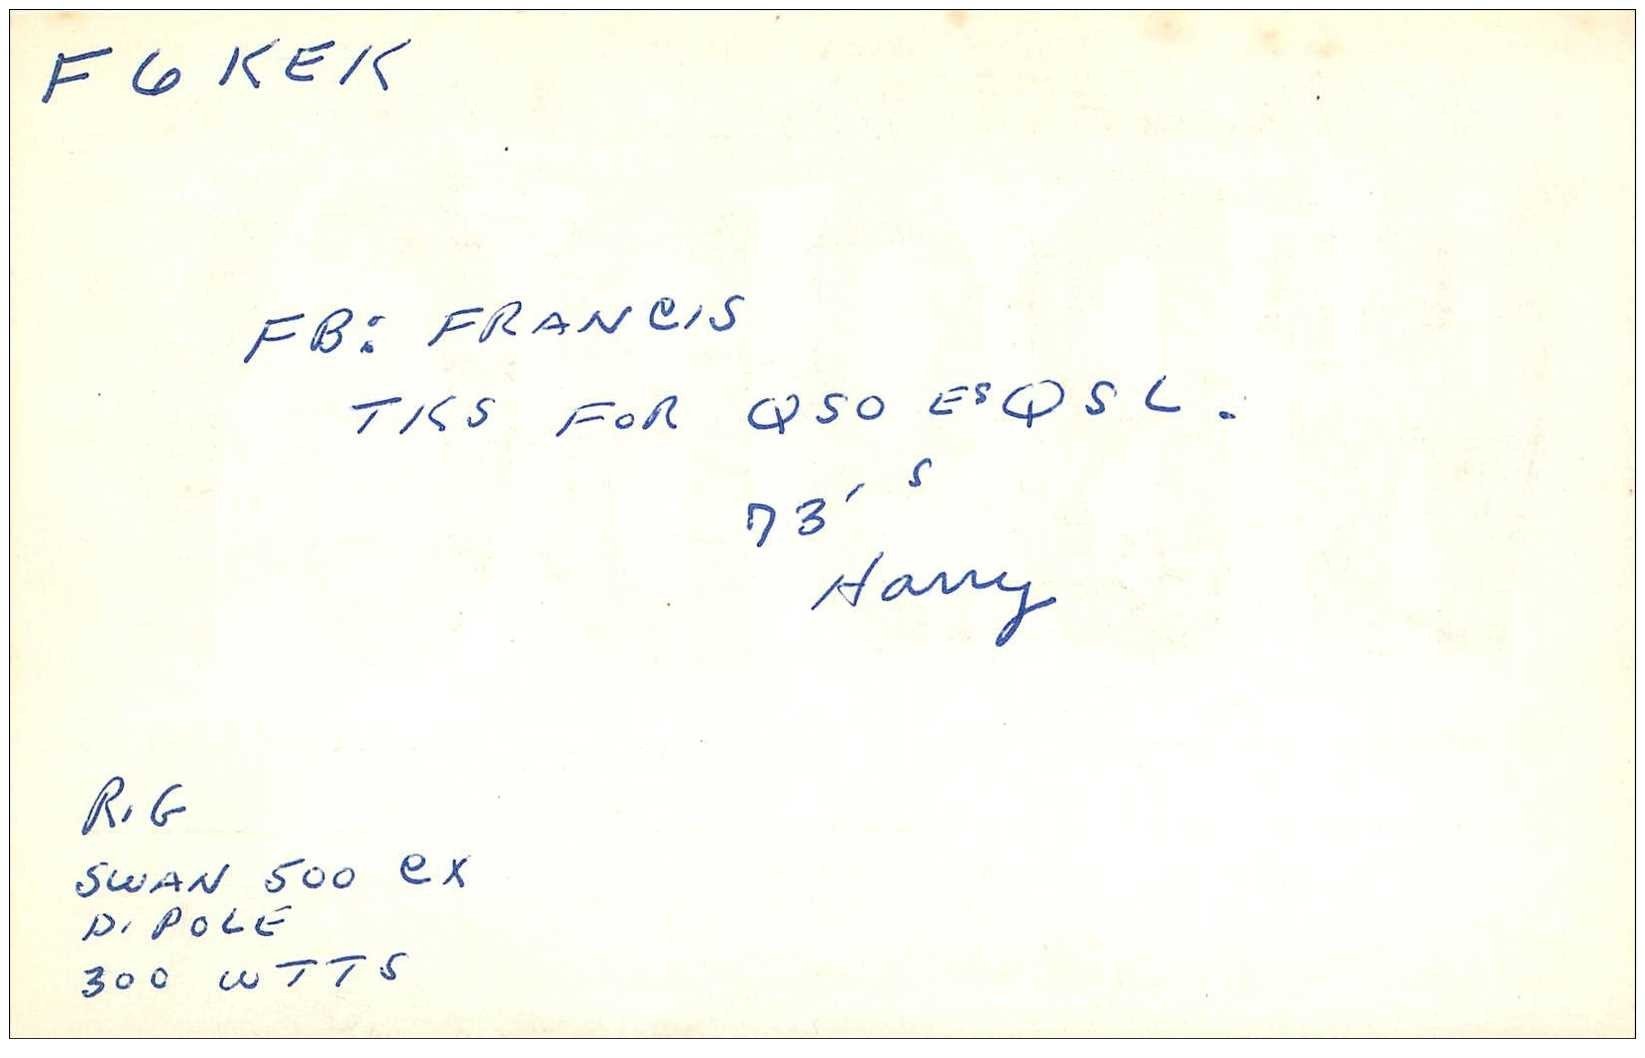 F6KEK
FB: FRANCIS
TKS FOR QSO ES QSL.
73's
Harry
RIG
SWAN 500 CX
DIPOLE
300 WTTS